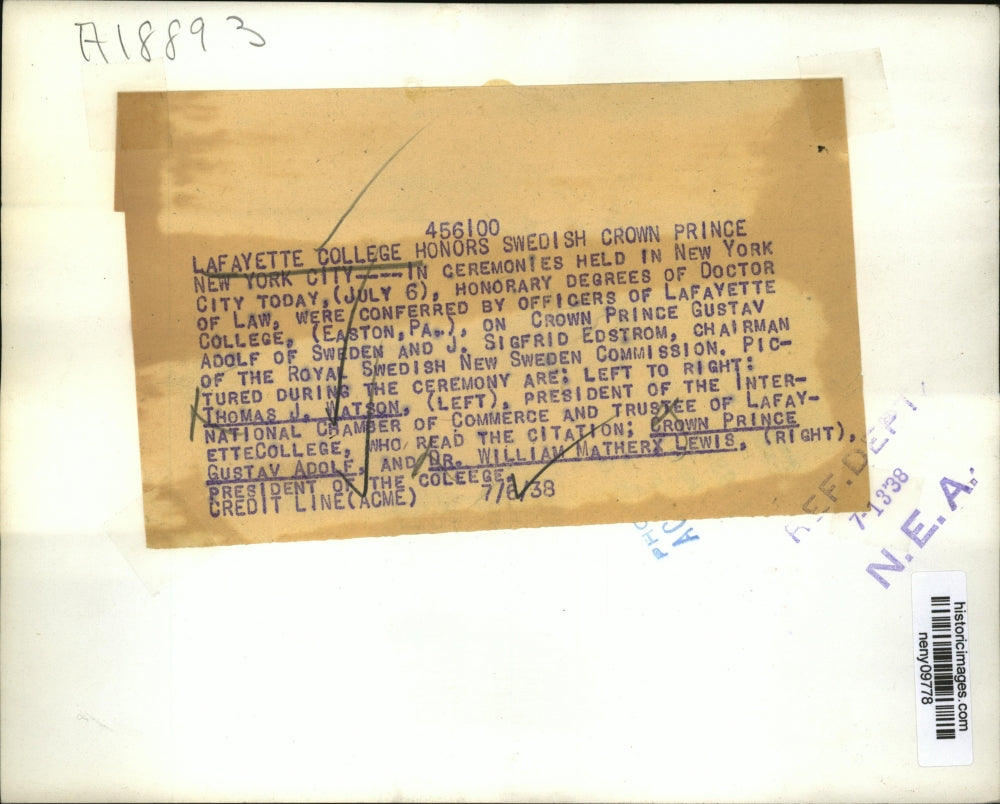 A18893
456100
LAFAYETTE COLLEGE HONORS SWEDISH CROWN PRINCE
NEW YORK CITY----IN CEREMONIES HELD IN NEW YORK
CITY TODAY,(JULY 6), HONORARY DEGREES OF DOCTOR
OF LAW, WERE CONFERRED BY OFFICERS OF LAFAYETTE
COLLEGE, (EASTON,PA.,), ON CROWN PRINCE GUSTAV
ADOLF OF SWEDEN AND J. SIGFRID EDSTROM, CHAIRMAN
OF THE ROYAL SWEDISH NEW SWEDEN COMMISSION. PIC-
TURED DURING THE CEREMONY ARE: LEFT TO RIGHT:
THOMAS J. WATSON, (LEFT), PRESIDENT OF THE INTER-
NATIONAL CHAMBER OF COMMERCE AND TRUSTEE OF LAFAY-
ETTECOLLEGE, WHO READ THE CITATION; CROWN PRINCE
GUSTAV ADOLF, AND DR. WILLIAM MATHERX LEWIS, (RIGHT),
PRESIDENT OF THE COLEEGE.
CREDIT LINE(ACME) 7/6/38
PHO
AC
REF. DEPT.
7-13'38
N.E.A.
historicimages.com
neny09778